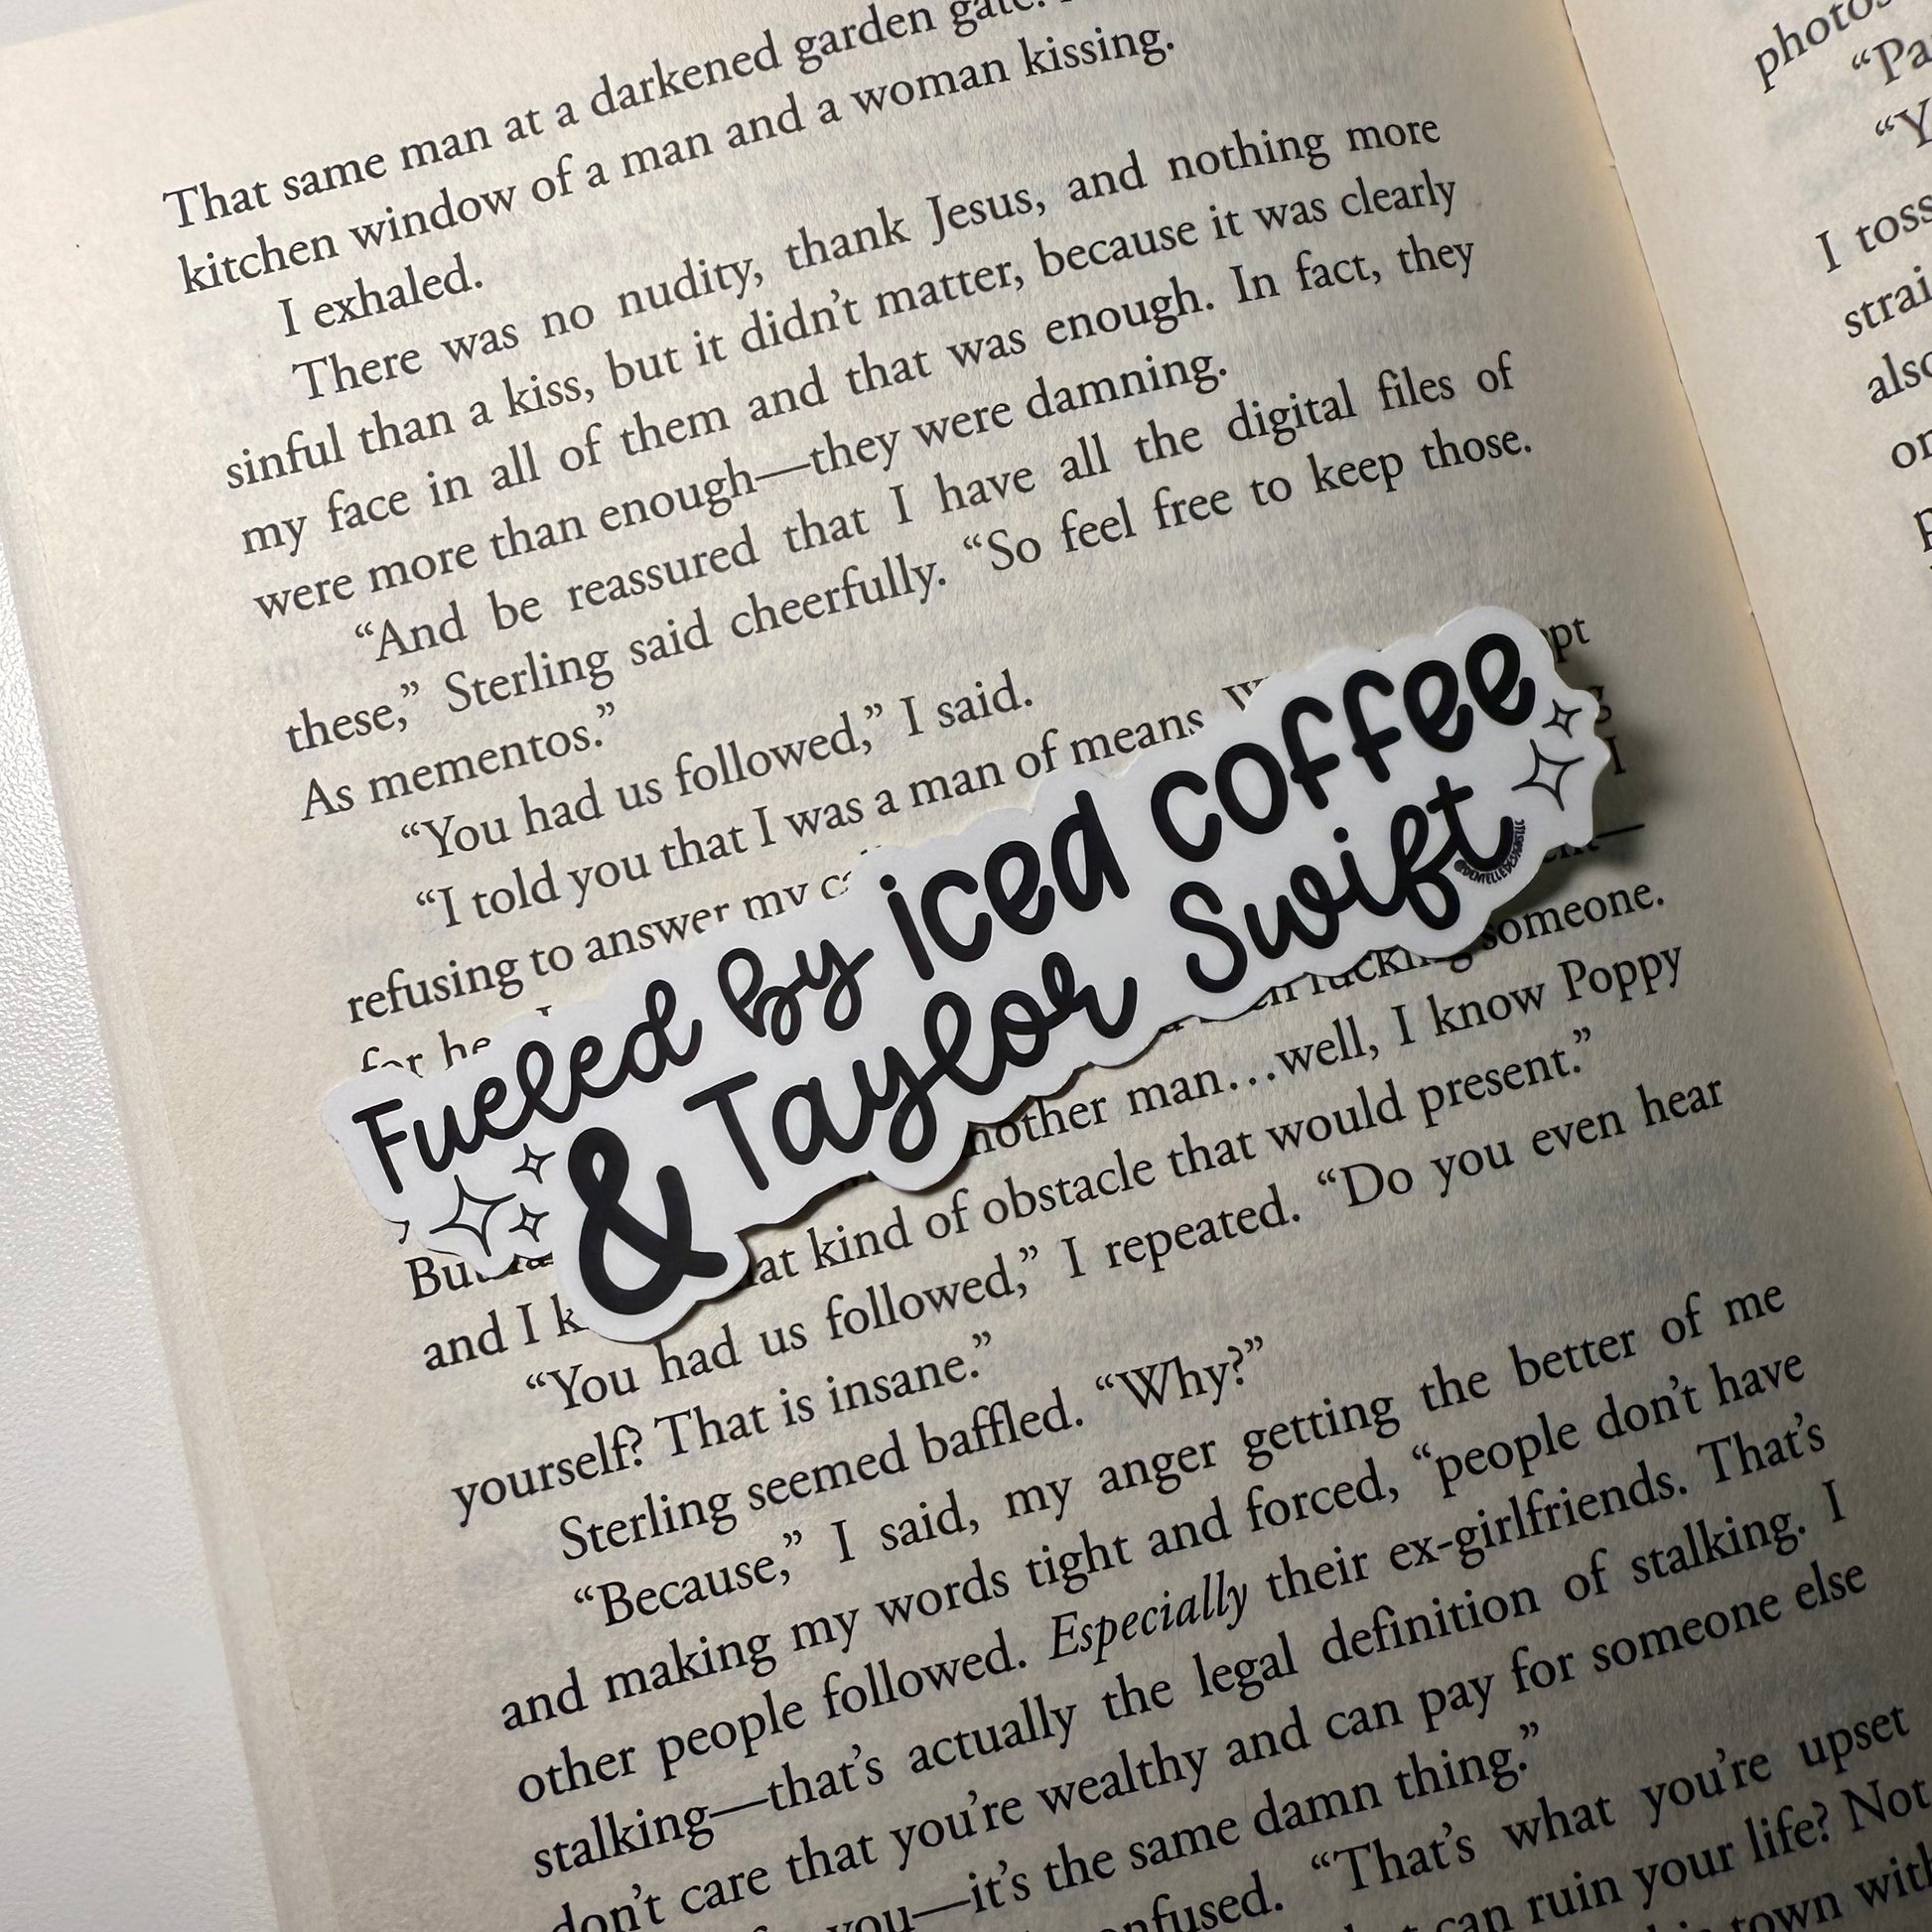 That same man at a darkened garden gate.
kitchen window of a man and a woman kissing.
I exhaled.
There was no nudity, thank Jesus, and nothing more
sinful than a kiss, but it didn’t matter, because it was clearly
my face in all of them and that was enough. In fact, they
were more than enough—they were damning.
“And be reassured that I have all the digital files of
these,” Sterling said cheerfully. “So feel free to keep those.
As mementos.”
“You had us followed,” I said.
“I told you that I was a man of means
refusing to answer my
for he
Fueled by iced coffee
& Taylor Swift
@DENTELLEDESIGNSLLC
someone.
But
another man…well, I know Poppy
and I k
kind of obstacle that would present.”
“You had us followed,” I repeated. “Do you even hear
yourself? That is insane.”
Sterling seemed baffled. “Why?”
“Because,” I said, my anger getting the better of me
and making my words tight and forced, “people don’t have
other people followed. Especially their ex-girlfriends. That’s
stalking—that’s actually the legal definition of stalking. I
don’t care that you’re wealthy and can pay for someone else
you—it’s the same damn thing.”
“That’s what you’re upset
can ruin your life? Not
town with
photos
“Pa
“Y
I toss
strai
also
on
p